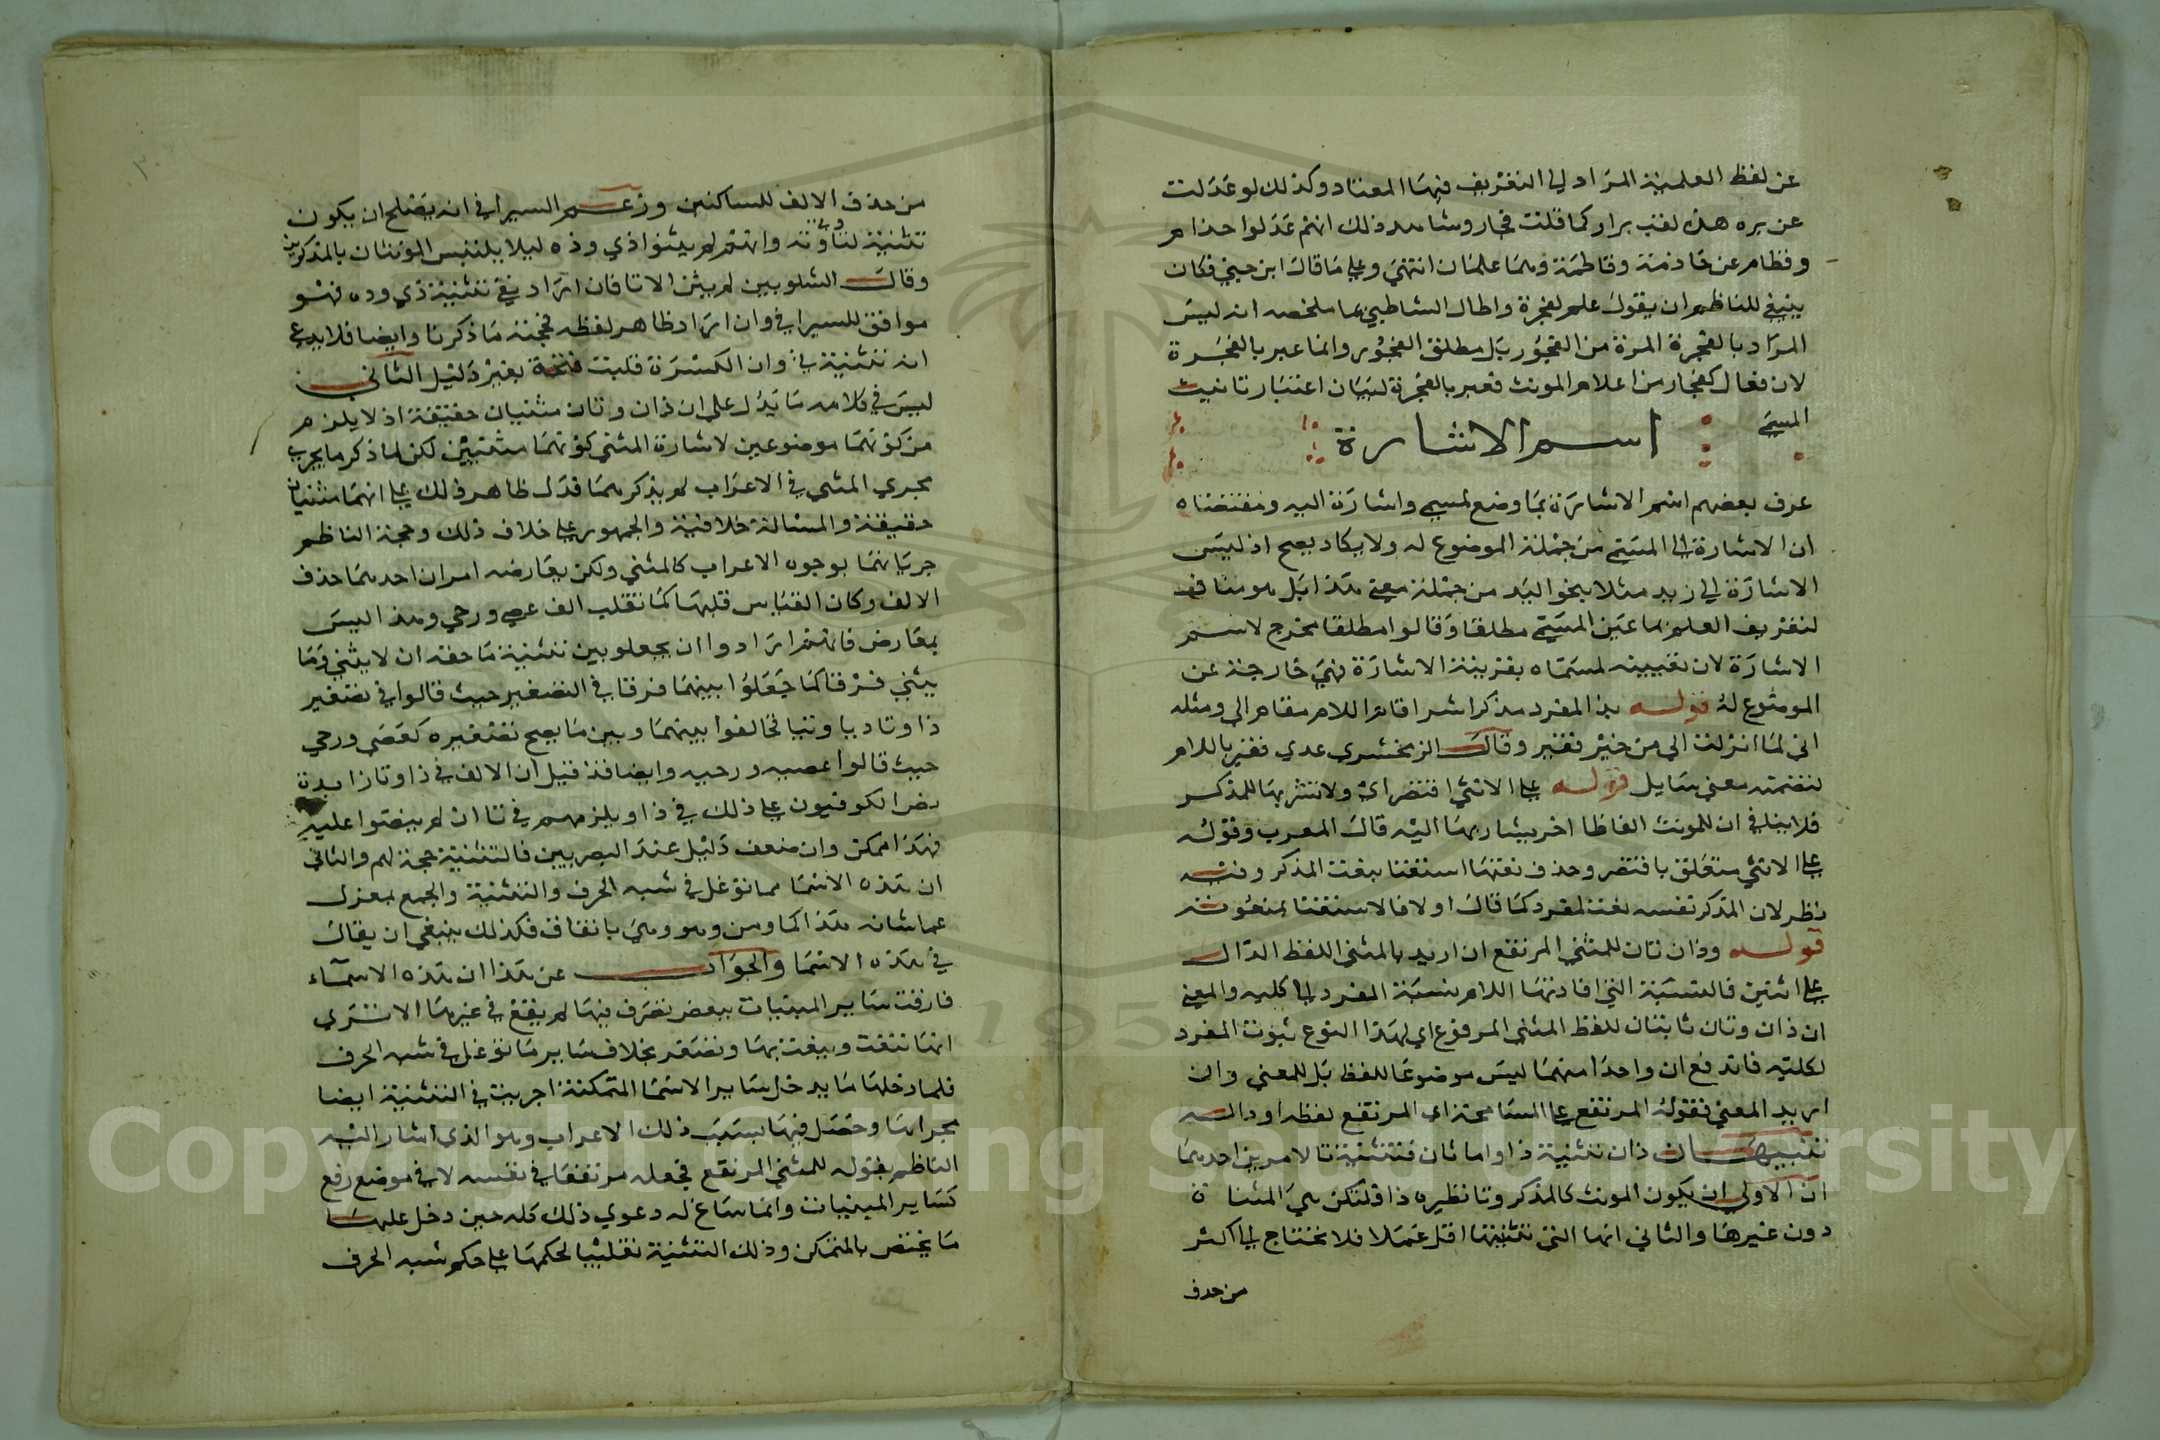 عن لفظ العلمية المراد لي التعريف فيها المعتاد وكذلك لو عدلت
عن بره هذه لقلت برار كما قلت فجار وشاهد ذلك انهم عدلوا حذام
وقطام عن حاذمة وقاطمة وهما علمان انتهي وعلي ما قال ابن جني فكان
ينبغي للناظم ان يقول علم لفجرة واطال الشاطبي بما ملخصه انه ليس
المراد بالفجرة المرة من الفجور بل مطلق الفجور وانما عبر بالفجرة
لان فعال كفجار من اعلام المونث فعبر بالفجرة لبيان اعتبار تانيث
المسمي
اسم الاشارة
عرف بعضهم اسم الاشارة بما وضع لمسمي واشارة اليه ومقتضاه
ان الاشارة الي المسمي من جملة الموضوع له ولا يكاد يصح اذ ليس
الاشارة الي زيد مثلا بنحو اليد من جملة معني هذا بل هو مناف
لتعريف العلم بما عين المسمي مطلقا وقالوا مطلقا مخرج لاسم
الاشارة لان تعيينه لمسماه بقرينة الاشارة فهي خارجة عن
الموضوع له قوله بذا لمفرد مذكر اشر اقام اللام مقام الي ومثله
اني لما انزلت الي من خير فقير وقال الزمخشري عدي فقير باللام
لتضمنه معني سايل قوله علي الانثي اقتصر اي ولا تشر بها للمذكر
فلا ينافي ان للمونث الفاظا اخر يشار بها اليه قال المعرب وقوله
علي الانثي متعلق باقتصر وحذف نعتها استغنا بنعت المذكر وفيه
نظر لان المذكر نفسه نعت لمفرد كما قال اولا فالاستغنا بمنعوته
قوله وذان تان للمثني المرتفع ان اريد بالمثني اللفظ الدال
علي اثنين فالنسبة التي افادتها اللام نسبة المفرد الي كليه والمعني
ان ذان وتان ثابتان للفظ المثني المرفوع اي لهذا النوع ثبوت المفرد
لكليه فاندفع ان واحدا منهما ليس موضوعا للفظ بل للمعني وان
اريد المعني فقوله المرتفع علي المسامحة اي المرتفع لفظه او داله
تنبيهان ذان تثنية ذا واما تان فتثنية تا لامرين احدهما
ان الاولي ان يكون المونث كالمذكر وتا نظيره ذا فلتكن هي المثناة
دون غيرها والثاني انها التي تثنيتها اقل عملا فلا نحتاج الي اكثر
من حذف
من حذف الالف للساكنين وزعم السيرافي انه يصلح ان يكون
تثنية لتا وته وانهم لم يثنوا ذي وذه ليلا يلتبس المونثان بالمذكرين
وقال الشلوبين لم يثن الا تا فان اراد نفي تثنية ذي وده فهو
موافق للسيرافي وان اراد ظاهر لفظه فحجته ما ذكرنا وايضا فلا يدعي
انه تثنية ذي وان الكسرة قلبت فتحة بغير دليل الثاني
ليس في كلامه ما يدل علي ان ذان وتان مثنيان حقيقة اذ لا يلزم
من كونهما موضوعين لاشارة المثني كونهما مثنيين لكن لما ذكر ما يجري
مجري المثني في الاعراب لم يذكرهما فدل ظاهر ذلك علي انهما مثنيان
حقيقة والمسالة خلافية والجمهور علي خلاف ذلك وحجة الناظم
جريانهما بوجوه الاعراب كالمثني ولكن يعارضه امران احدهما حذف
الالف وكان القياس قلبها كما تقلب الف عصي ورحي وهذا ليس
بمعارض فانهم ارادوا ان يجعلوا بين تثنية ما حقه ان لا يثني وما
يثني فرقا كما جعلوا بينهما فرقا في التصغير حيث قالوا في تصغير
ذا وتا ديا وتيا فخالفوا بينهما وبين ما يصح تصغيره كعصي ورحي
حيث قالوا عصيه ورحيه وايضا فقد قيل ان الالف في ذا وتا زايدة
نص الكوفيون علي ذلك في ذا ويلزمهم في تا ان لم ينصوا عليه
فهذا ممكن وان ضعف دليل عند البصريين فالتثنية حجة لهم والثاني
ان هذه الاسما مما توغل في شبه الحرف والتثنية والجمع بمعزل
عما شانه هذا كما ومن وهو وهي باتفاق فكذلك ينبغي ان يقال
في هذه الاسما والجواب عن هذا ان هذه الاسماء
فارقت ساير المبنيات ببعض تصرف فيها لم يقع في غيرها الا تري
انها تنعت وينعت بها وتصغر بخلاف ساير ما توغل في شبه الحرف
فلما دخلها ما يدخل ساير الاسما المتمكنة اجريت في التثنية ايضا
مجراها وحصل فيها بسبب ذلك الاعراب وهو الذي اشار اليه
الناظم بقوله للمثني المرتفع فجعله مرتفعا في نفسه لا في موضع رفع
كساير المبنيات وانما ساغ له دعوي ذلك كله حين دخل عليها
ما يختص بالمتمكن وذلك التثنية تغليبا لحكمها علي حكم شبه الحرف
Copyright © King Saud University
195